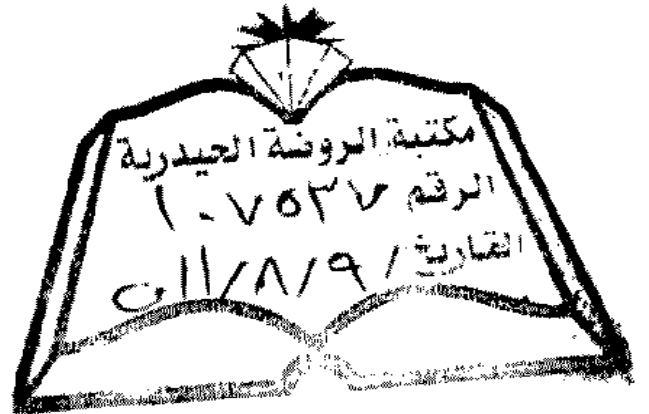 مكتبة الروضة الحيدرية
الرقم ١٠٧٥٣٧
التاريخ / ٩/٨/١١